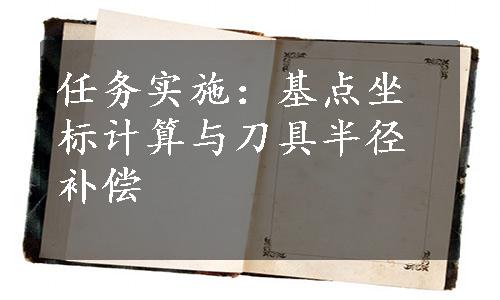 任务实施：基点坐
标计算与刀具半径
补偿